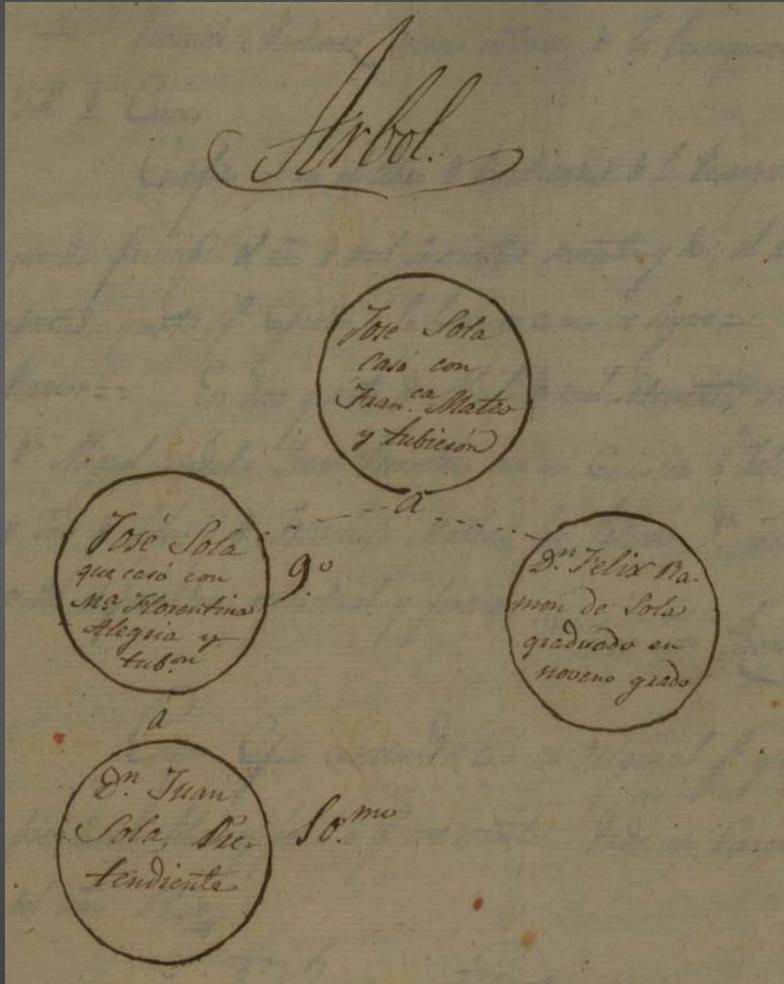 Arbol.
José Sola
casó con
Fran.ca Mateo
y tubierón
a
José Sola
que casó con
M.a Florentina
Alegria y
tub.on
9.o
D.n Felix Ra-
mon de Sola
graduado en
noveno grado
a
D.n Juan
Sola, Pre-
tendiente
10.mo